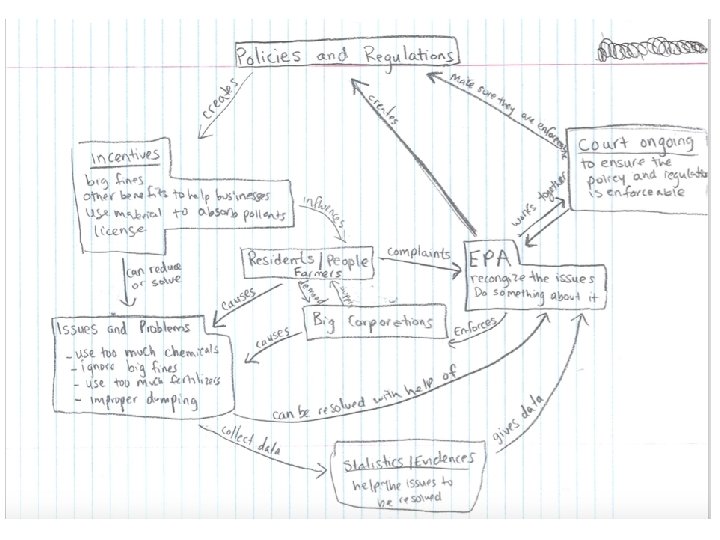 Policies and Regulations
creates
creates
make sure they are enforced
Incentives
big fines
other benefits to help businesses
use material to absorb pollents
license
influences
Court ongoing
to ensure the
policy and regulation
is enforceable
works together
Residents/People
Farmers
complaints
EPA
recongize the issues
Do something about it
can reduce
or solve
causes
demand
Big Corporations
causes
Enforces
Issues and Problems
- use too much chemicals
- ignore big fines
- use too much fertilizers
- improper dumping
can be resolved with help of
collect data
gives data
Statistics/Evidences
help the issues to
be resolved